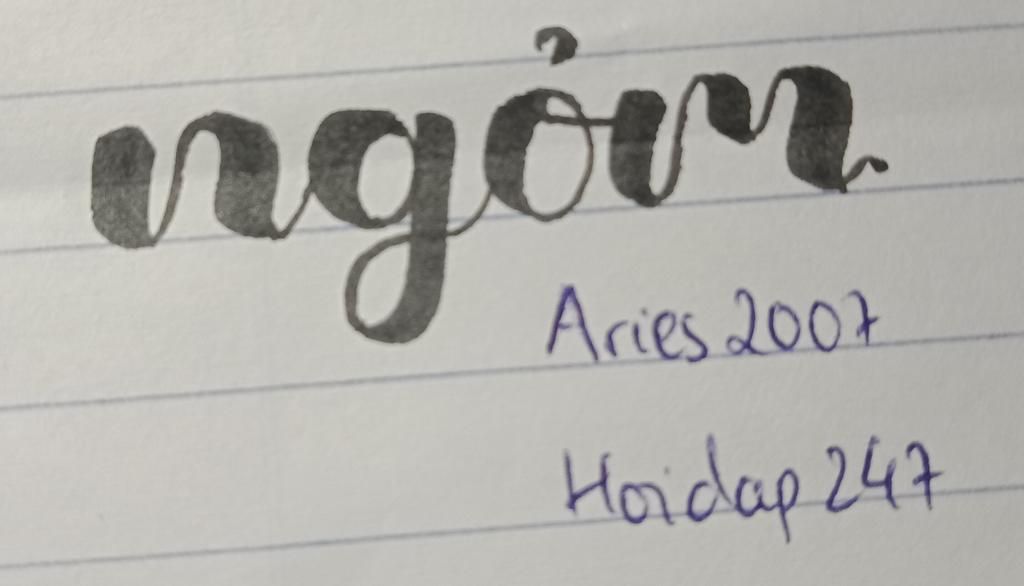 ngỏm
Aries 2007
Hoidap 247